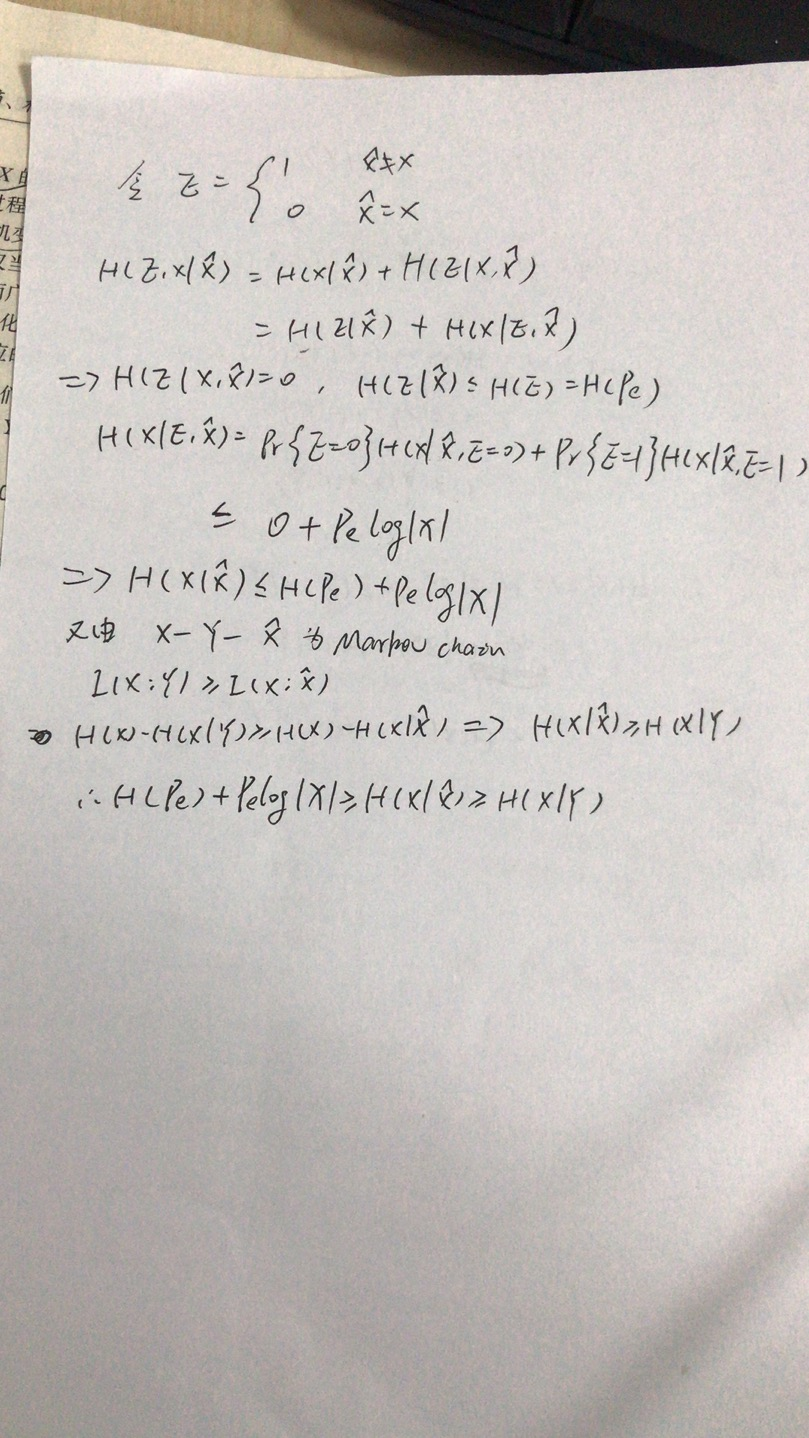 令 Z = { 1 X̂≠X
0 X̂=X
H(Z,X|X̂) = H(X|X̂) + H(Z|X,X̂)
= H(Z|X̂) + H(X|Z,X̂)
=> H(Z|X,X̂)=0, H(Z|X̂) ≤ H(Z) = H(Pe)
H(X|Z,X̂) = Pr{Z=0}H(X|X̂,Z=0) + Pr{Z=1}H(X|X̂,Z=1)
≤ 0 + Pe log|X|
=> H(X|X̂) ≤ H(Pe) + Pe log|X|
又由 X-Y-X̂ 为 Markov chain
I(X;Y) ≥ I(X;X̂)
H(X)-H(X|Y) ≥ H(X)-H(X|X̂) => H(X|X̂) ≥ H(X|Y)
∴ H(Pe) + Pe log|X| ≥ H(X|X̂) ≥ H(X|Y)
X
过程
机变
化